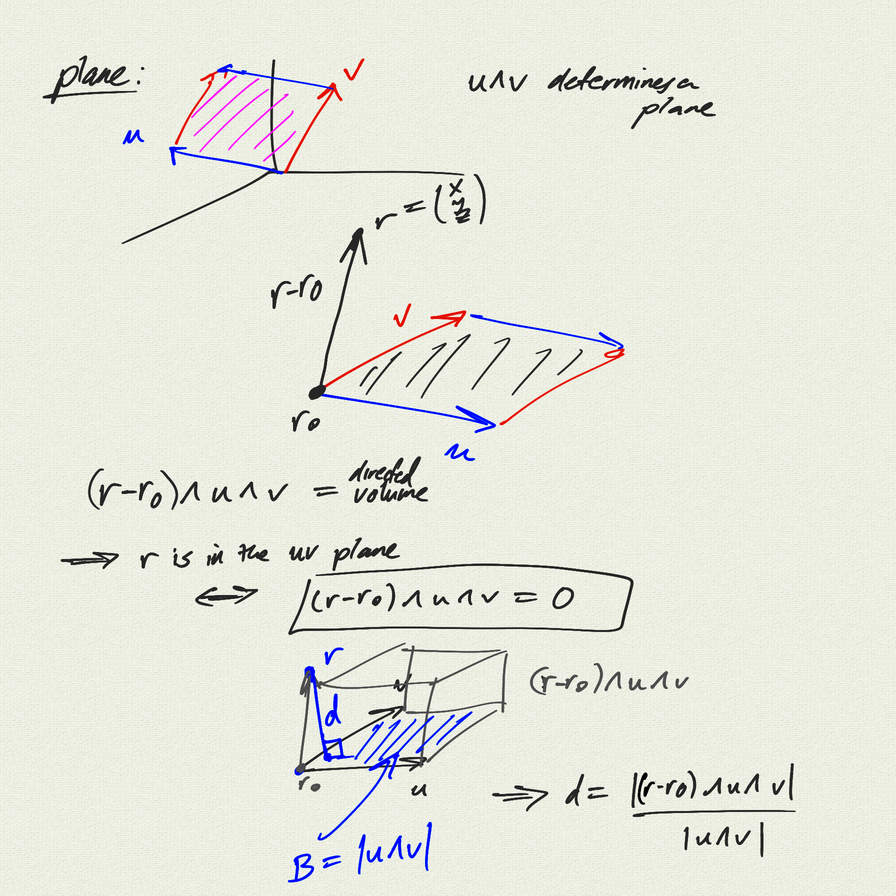 plane:
v
u∧v determines a
plane
u
r = (x
y
z)
r-r0
v
r0
u
(r-r0)∧u∧v = directed
volume
⟹ r is in the uv plane
⟷ (r-r0)∧u∧v = 0
r
(r-r0)∧u∧v
v
d
r0
u
⟹ d = |(r-r0)∧u∧v|
|u∧v|
B = |u∧v|